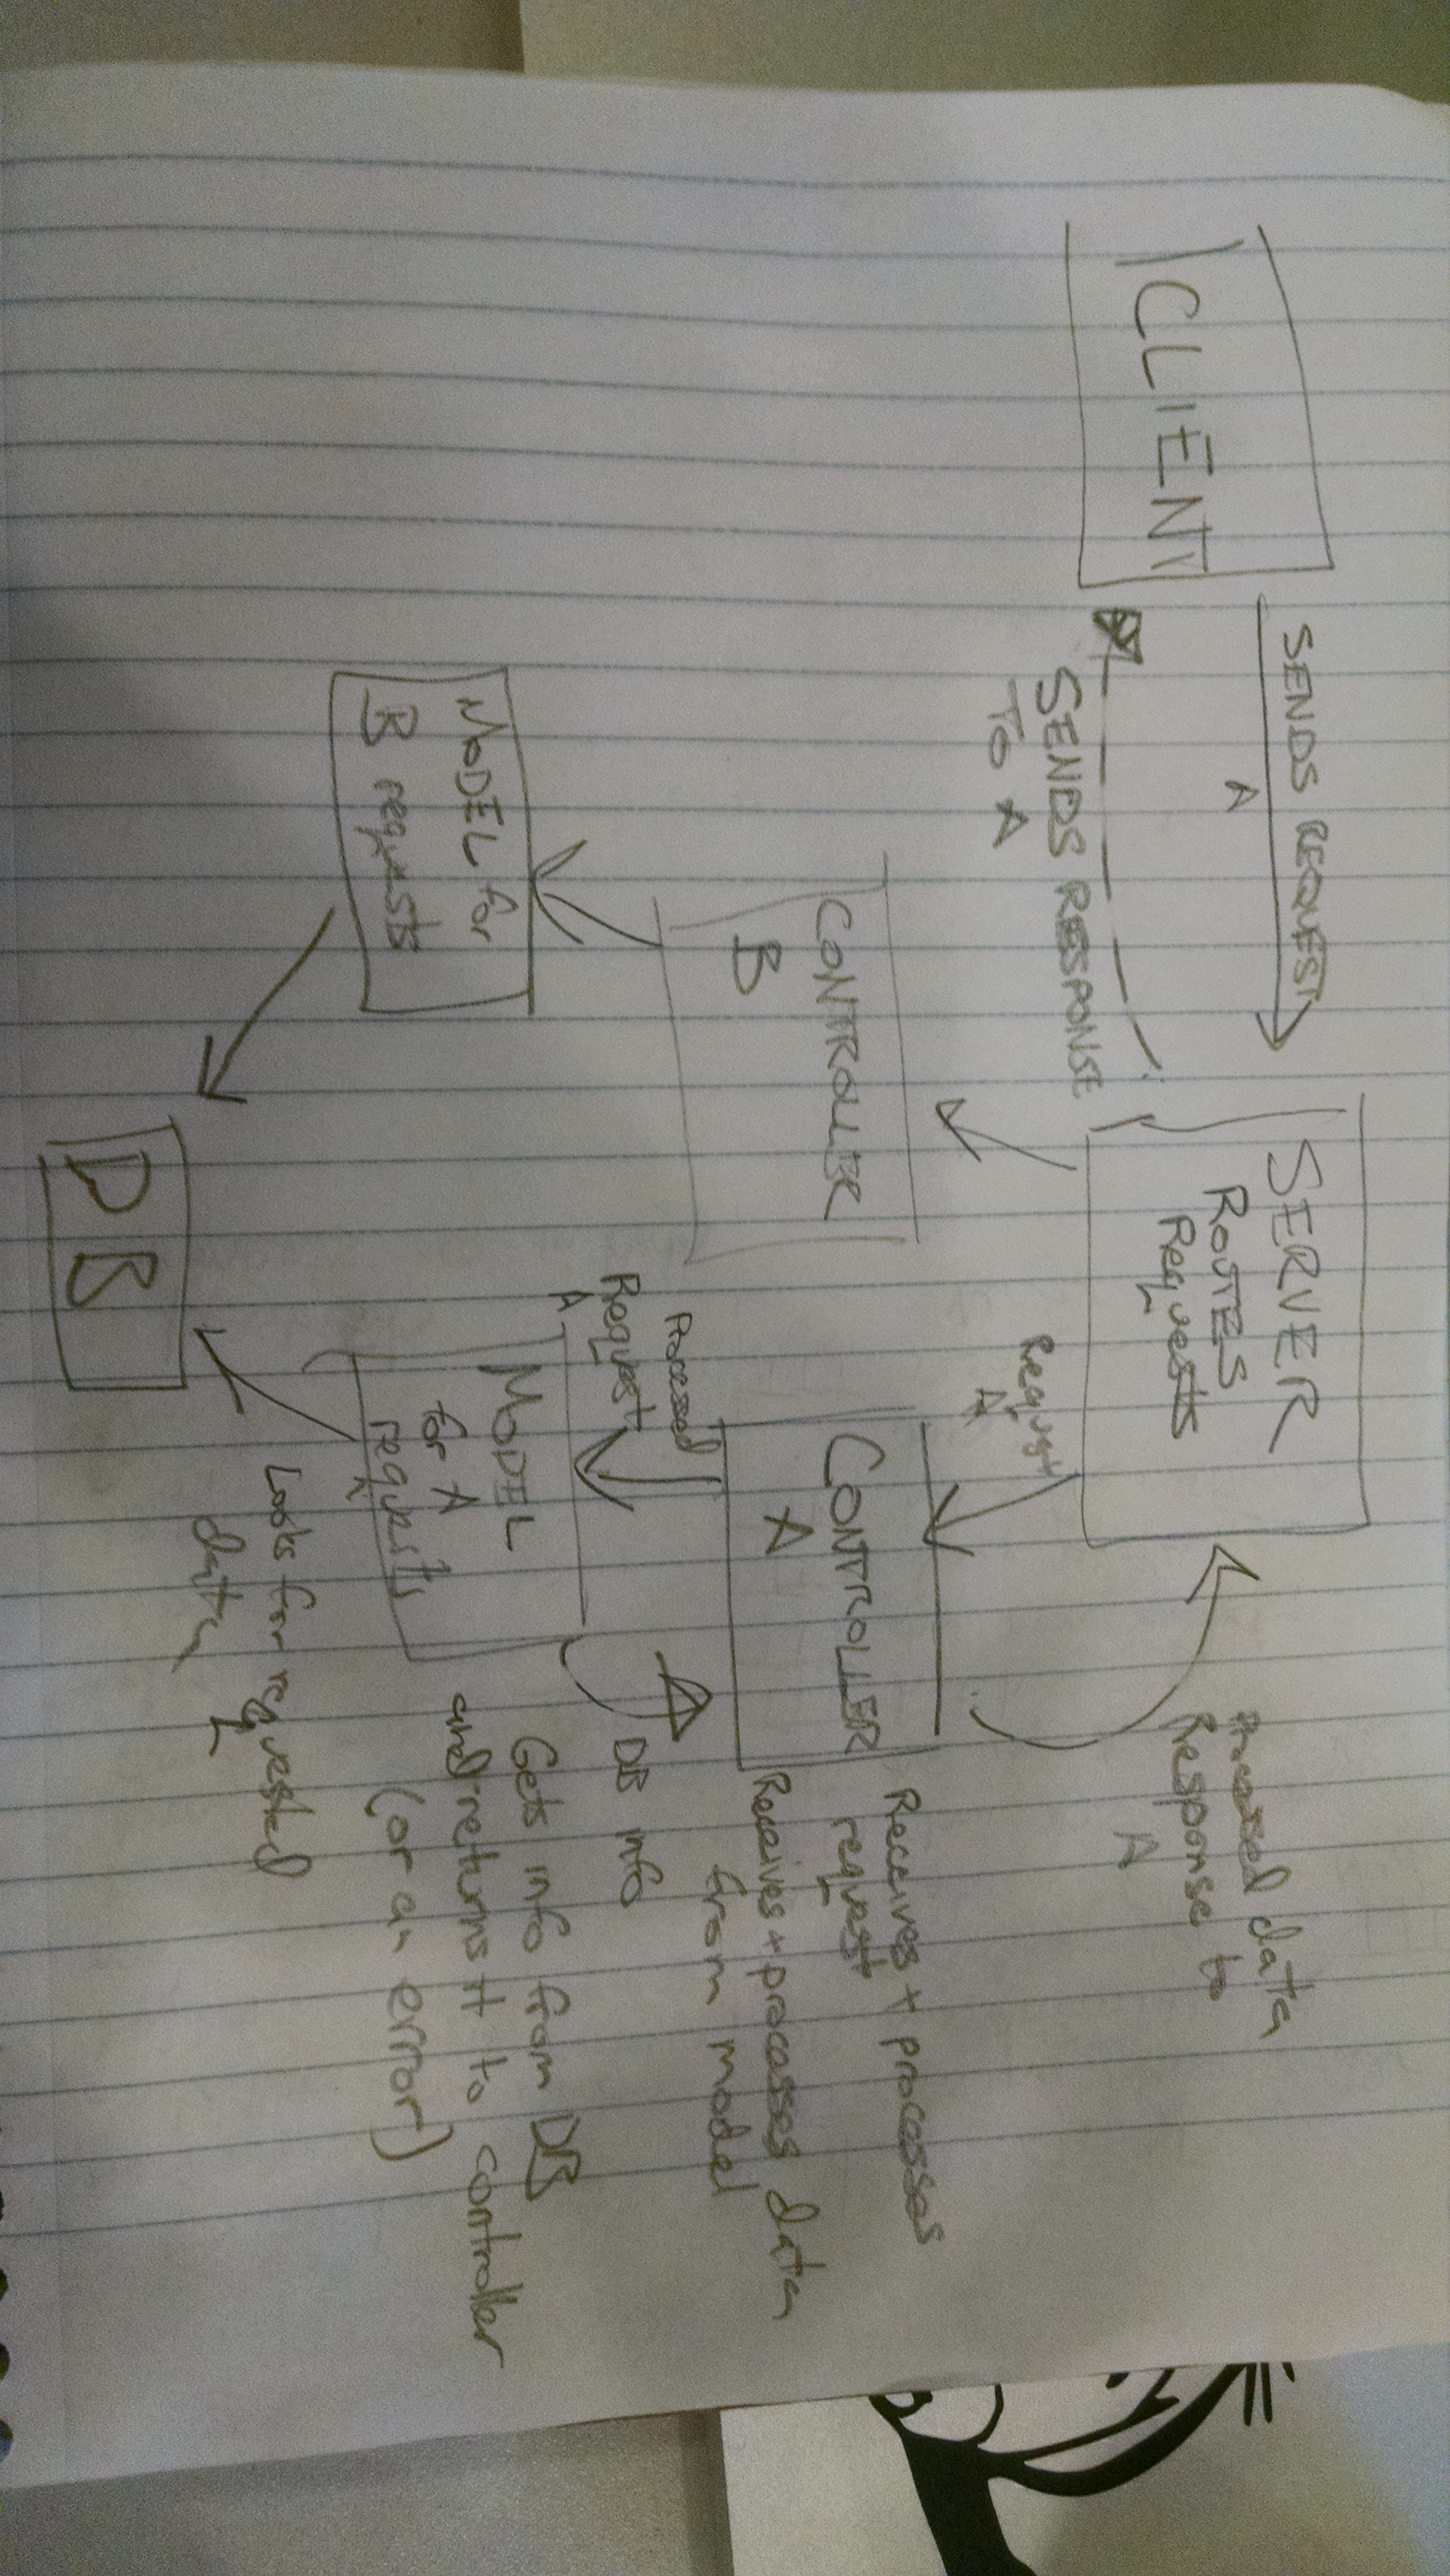 CLIENT
SENDS REQUEST
A
SENDS RESPONSE
TO A
SERVER
ROUTES
Requests
Processed data
Response to
A
Request
A
CONTROLLER
B
CONTROLLER
A
Receives + processes
request
Receives + processes data
from model
Processed
Request
A
DB info
MODEL for
B requests
MODEL
for A
requests
Gets info from DB
and returns it to controller
(or an error)
Looks for requested
data
DB